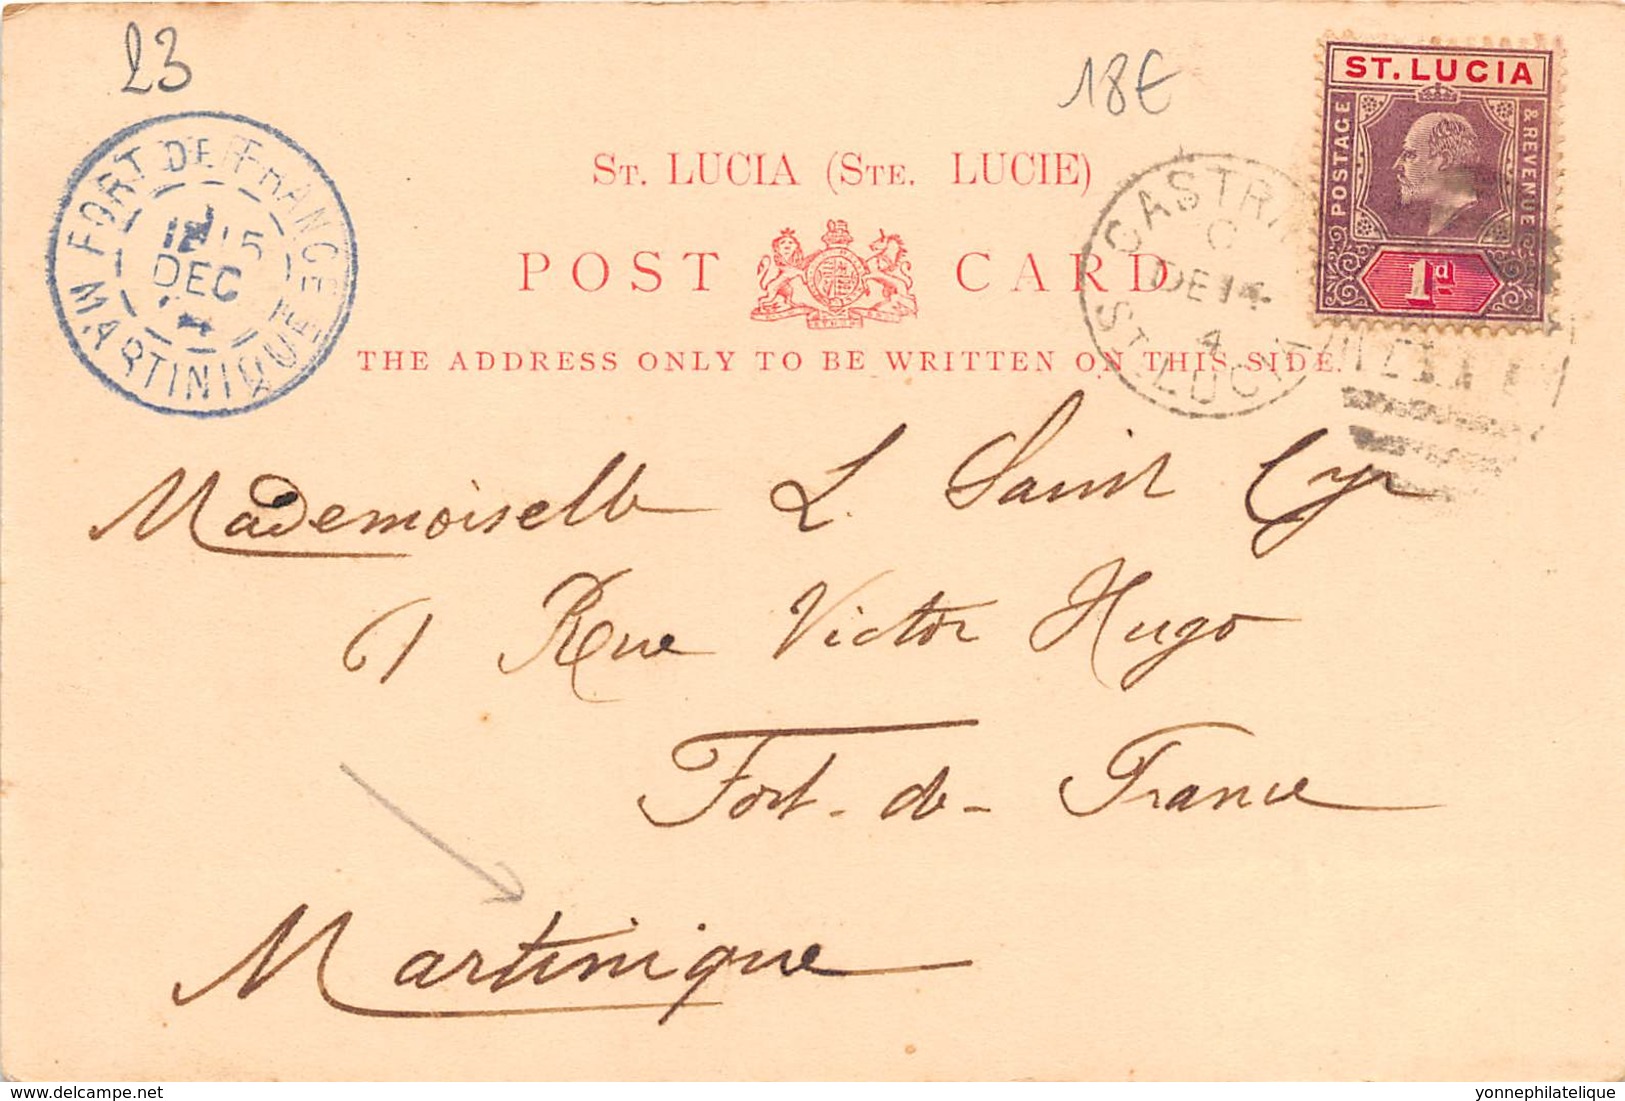 23
18€
ST. LUCIA
POSTAGE & REVENUE
1d
ST. LUCIA (STE. LUCIE)
POST CARD
THE ADDRESS ONLY TO BE WRITTEN ON THIS SIDE.
FORT DE FRANCE
15
DEC
MARTINIQUE
CASTRI
C
DE 14
4
ST. LUCIA
Mademoiselle L. Saint Cyr
61 Rue Victor Hugo
Fort-de-France
Martinique
delcampe.net
yonnephilatelique